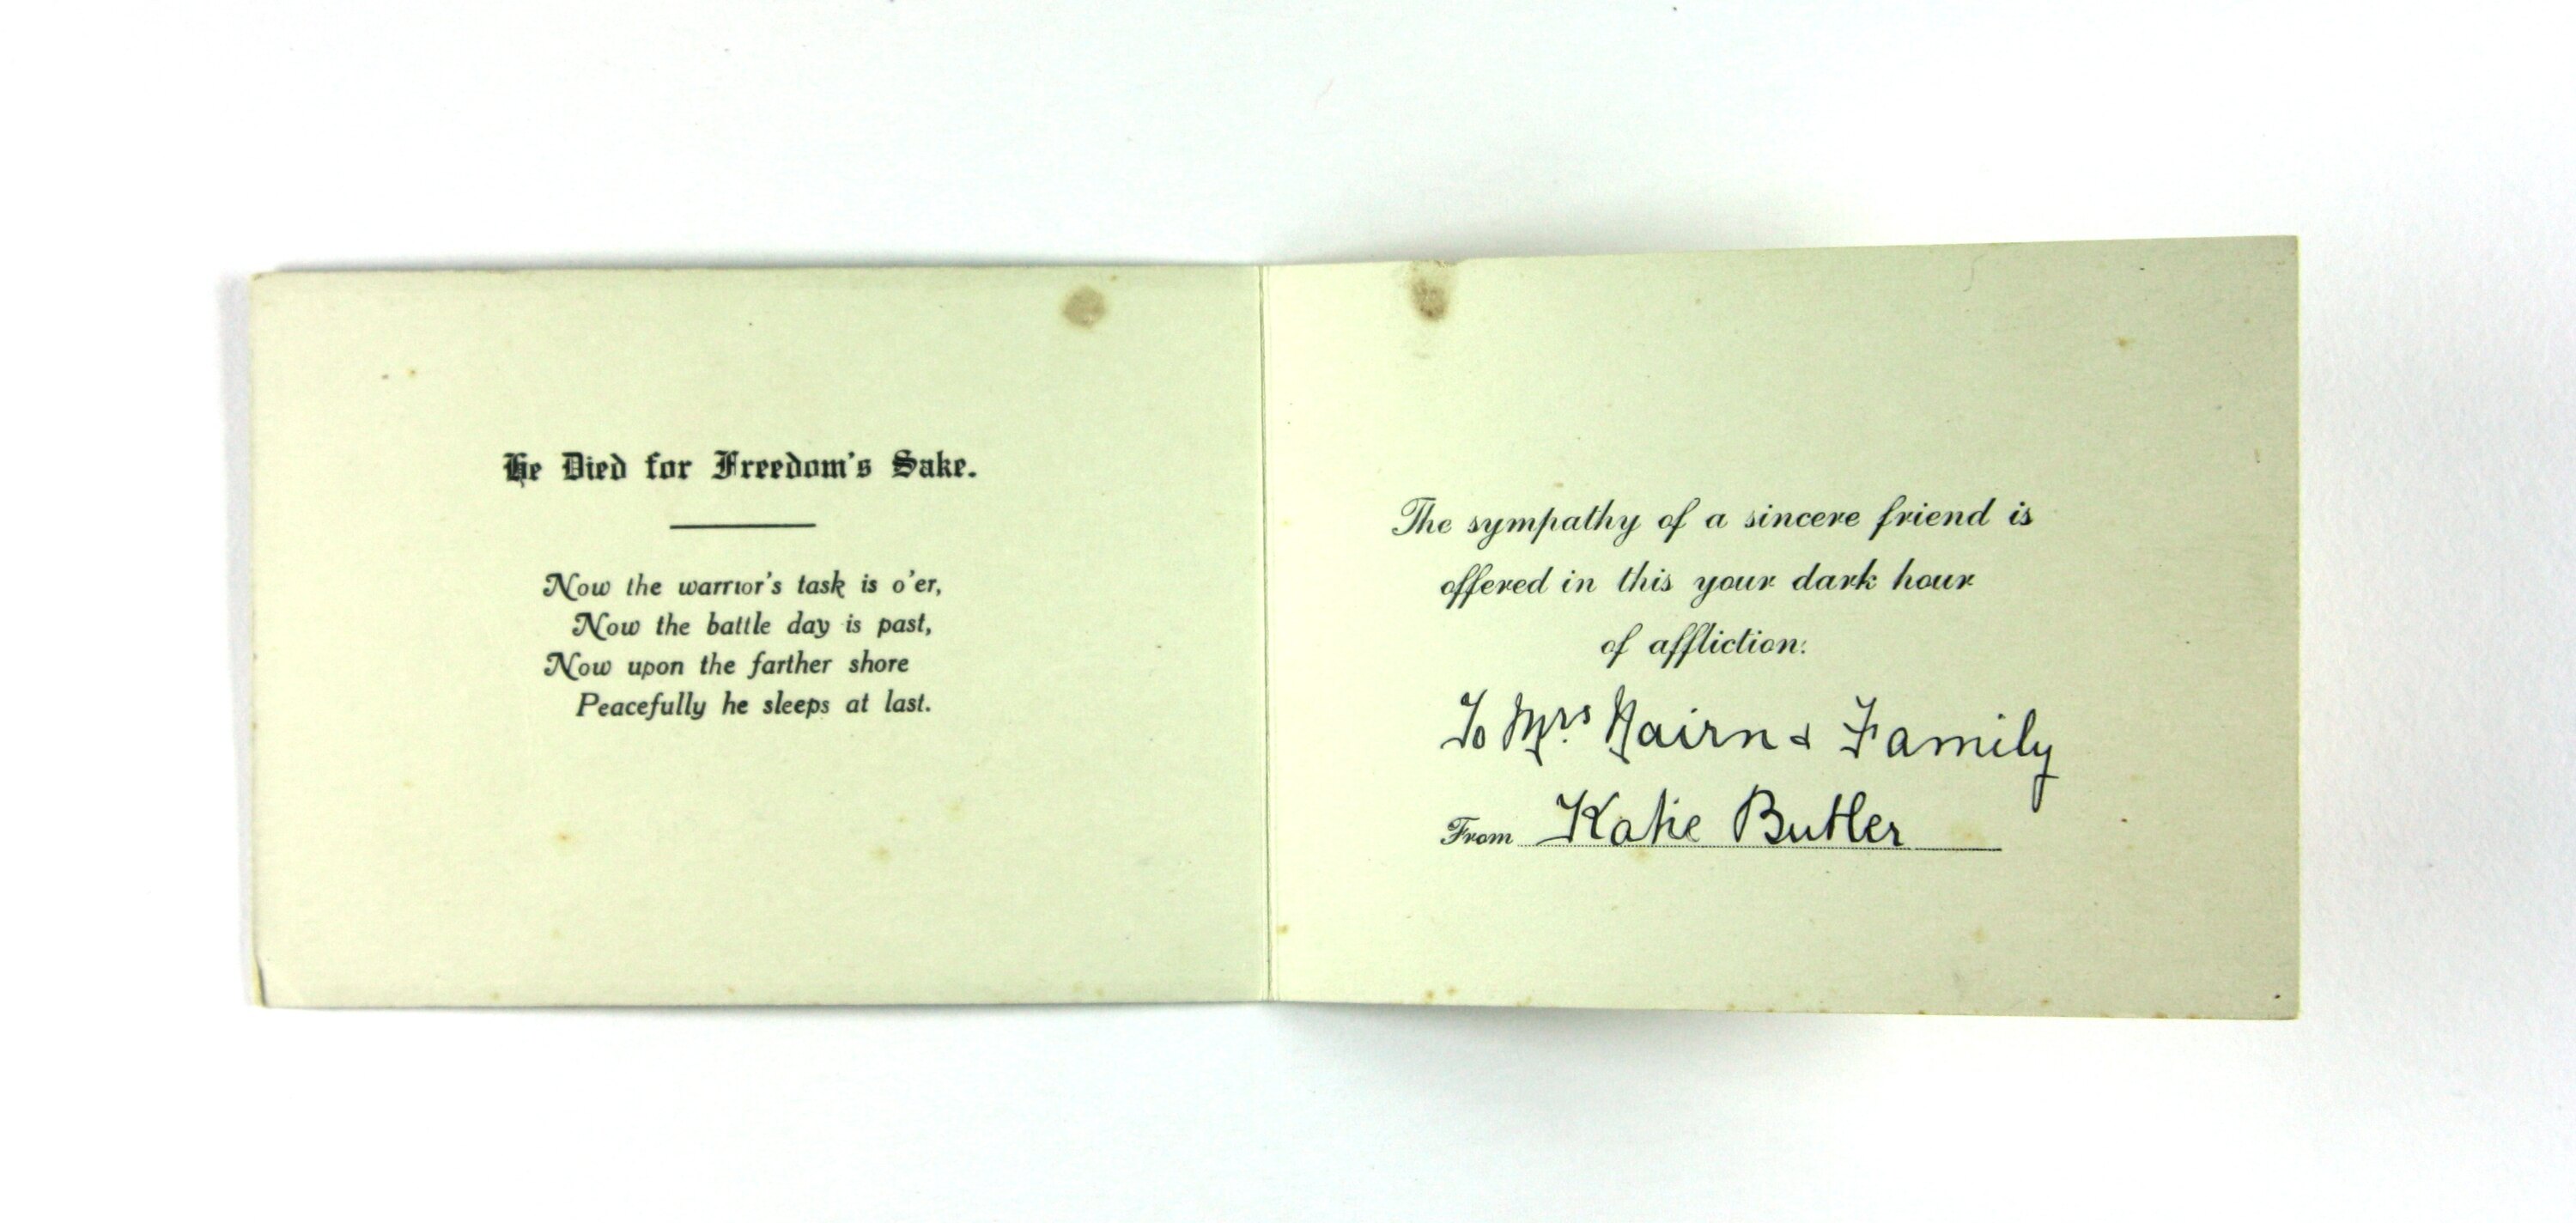 He Died for Freedom's Sake.
Now the warrior's task is o'er,
Now the battle day is past,
Now upon the farther shore
Peacefully he sleeps at last.
The sympathy of a sincere friend is
offered in this your dark hour
of affliction.
To Mrs. Nairn & Family
From Katie Butler